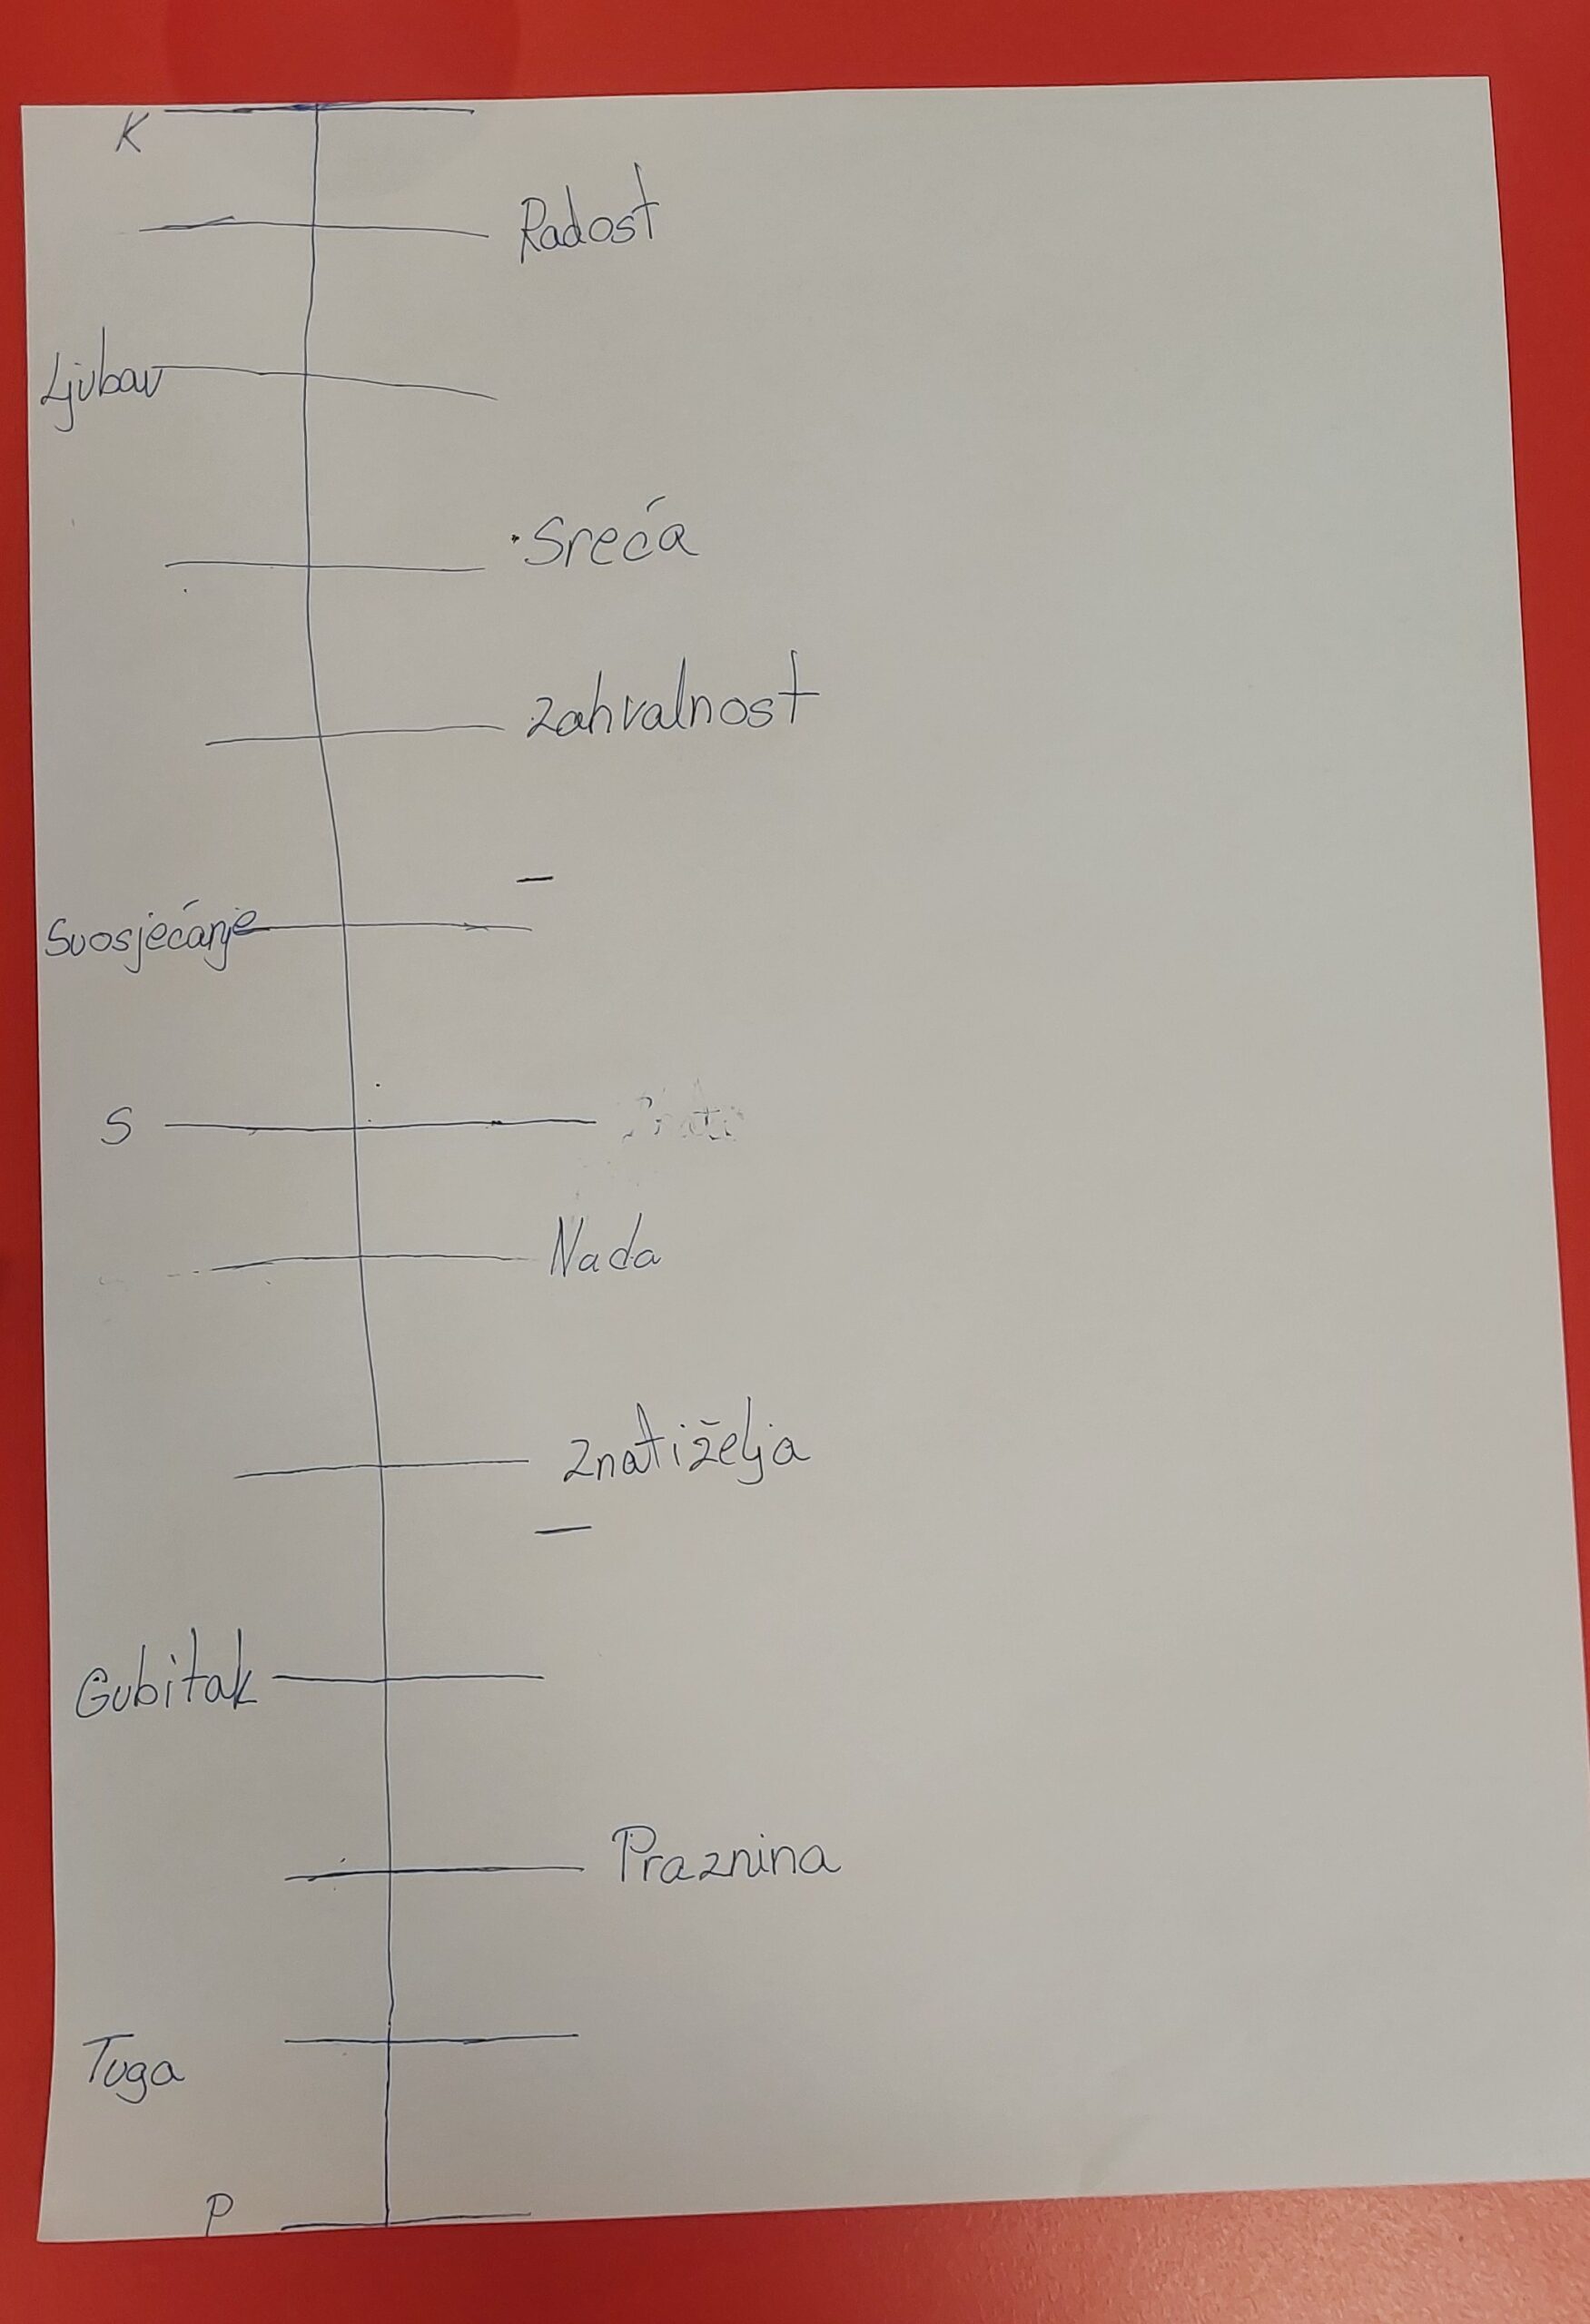 K
Radost
Ljubav
Sreća
zahvalnost
Suosjećanje
S
Nada
znatiželja
Gubitak
Praznina
Tuga
P